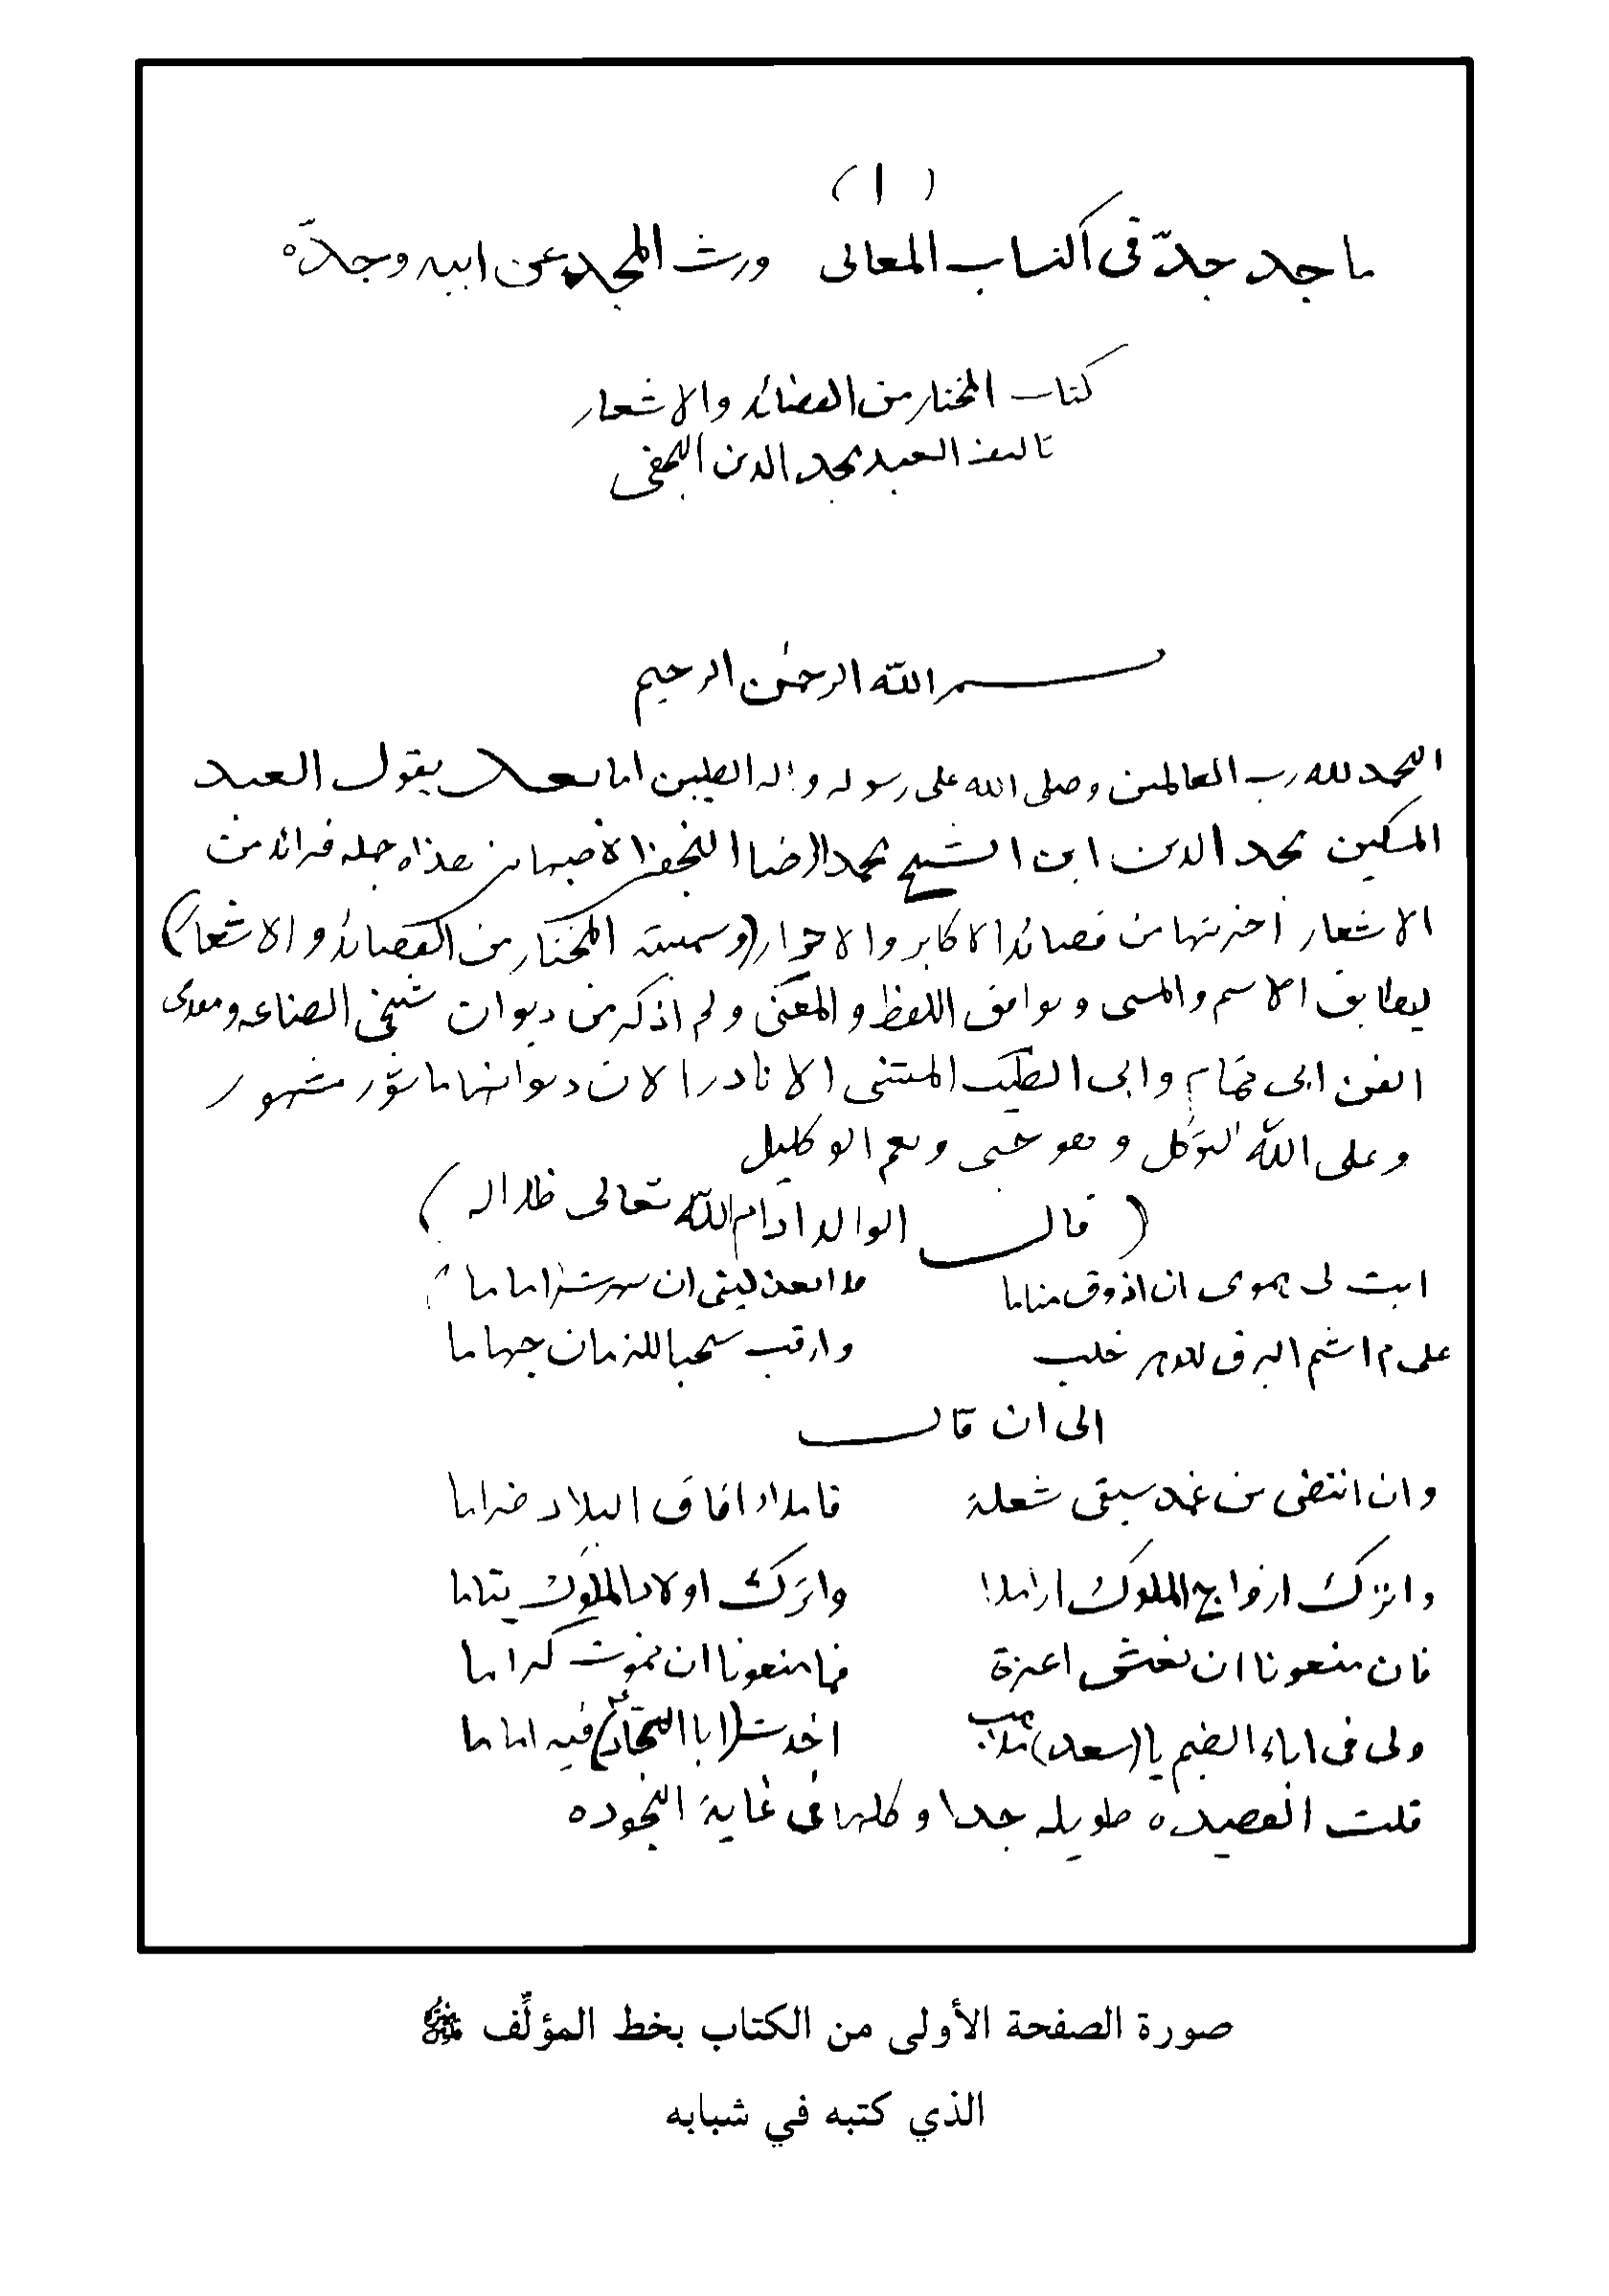 ( ١ )
ماجد جدّ فى اكتساب المعالى ورث المجد عن ابيه وجدّه
كتاب المختار من القصائد والاشعار
تاليف العبد مجد الدين النجفى
بسم الله الرحمٰن الرحيم
الحمد لله رب العالمين وصلى الله على رسوله واله الطيبين اما بعد يقول العبد
المسكين مجد الدين ابن الشيخ محمد الرضا النجفى الاصبهانى هذه جمله فرائد من
الاشعار اخترتها من قصائد الاكابر والاحرار (وسميته المختار من القصائد والاشعار)
ليطابق الاسم والمسمى ويوافق اللفظ والمعنى ولم اذكر من ديوان شيخى الصناعه و
الفن ابى تمام وابى الطيب المتنبى الا نادرا لان ديوانهما مشهور
وعلى الله التوكل وهو حسبى ونعم الوكيل
( قال الوالد ادام الله تعالى ظلاله )
ابت لى همومى ان اذوق مناما
على م اشم البرق للدهر خلب وارقب سحبا للزمان جهاما
الى ان قال
وان انتضى من غمد سيفى شعلة فاملاء افاق البلاد ضراما
واترك ازواج الملوك اراملا واترك اولاد الملوك يتاما
فان منعونا ان نعش اعزة فما منعونا ان نموت كراما
ولى فى اباء الضيم يا (سعد) مذهب اخذت (ابا السجاد) فيه اماما
قلت القصيده طويله جدا وكلها فى غاية الجوده
صورة الصفحة الأولى من الكتاب بخط المؤلِّف
الذي كتبه في شبابه